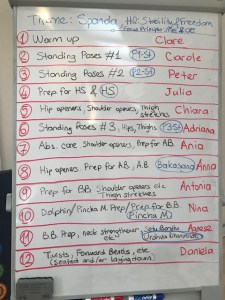 Theme: Spanda, HQ: Stability & Freedom
Focus Principle: ME & OE
1 Warm up Clare
2 Standing Poses #1 P1-St Carole
3 Standing Poses #2 P2-St Peter
4 Prep for HS & HS Julia
5 Hip openers, Shoulder openers, Thigh
stretches Chiara
6 Standing Poses #3, Hips, Thighs P3-St Adriana
7 Abs. core Shoulder openers, Prep for AB. Ania
8 Hip openers. Prep for AB, A.B. Bakasana Anna
9 Prep for B.B. Shoulder openers etc
Thigh stretches Antonia
10 Dolphin/Pincha M. Prep/Prep for BB
Pincha M Nina
11 B.B. Prep, neck strengthener
etc Setu Bandha
Urdhva Agnese
12 Twists, Forward Bends, etc
(seated and/or laying down) Daniela